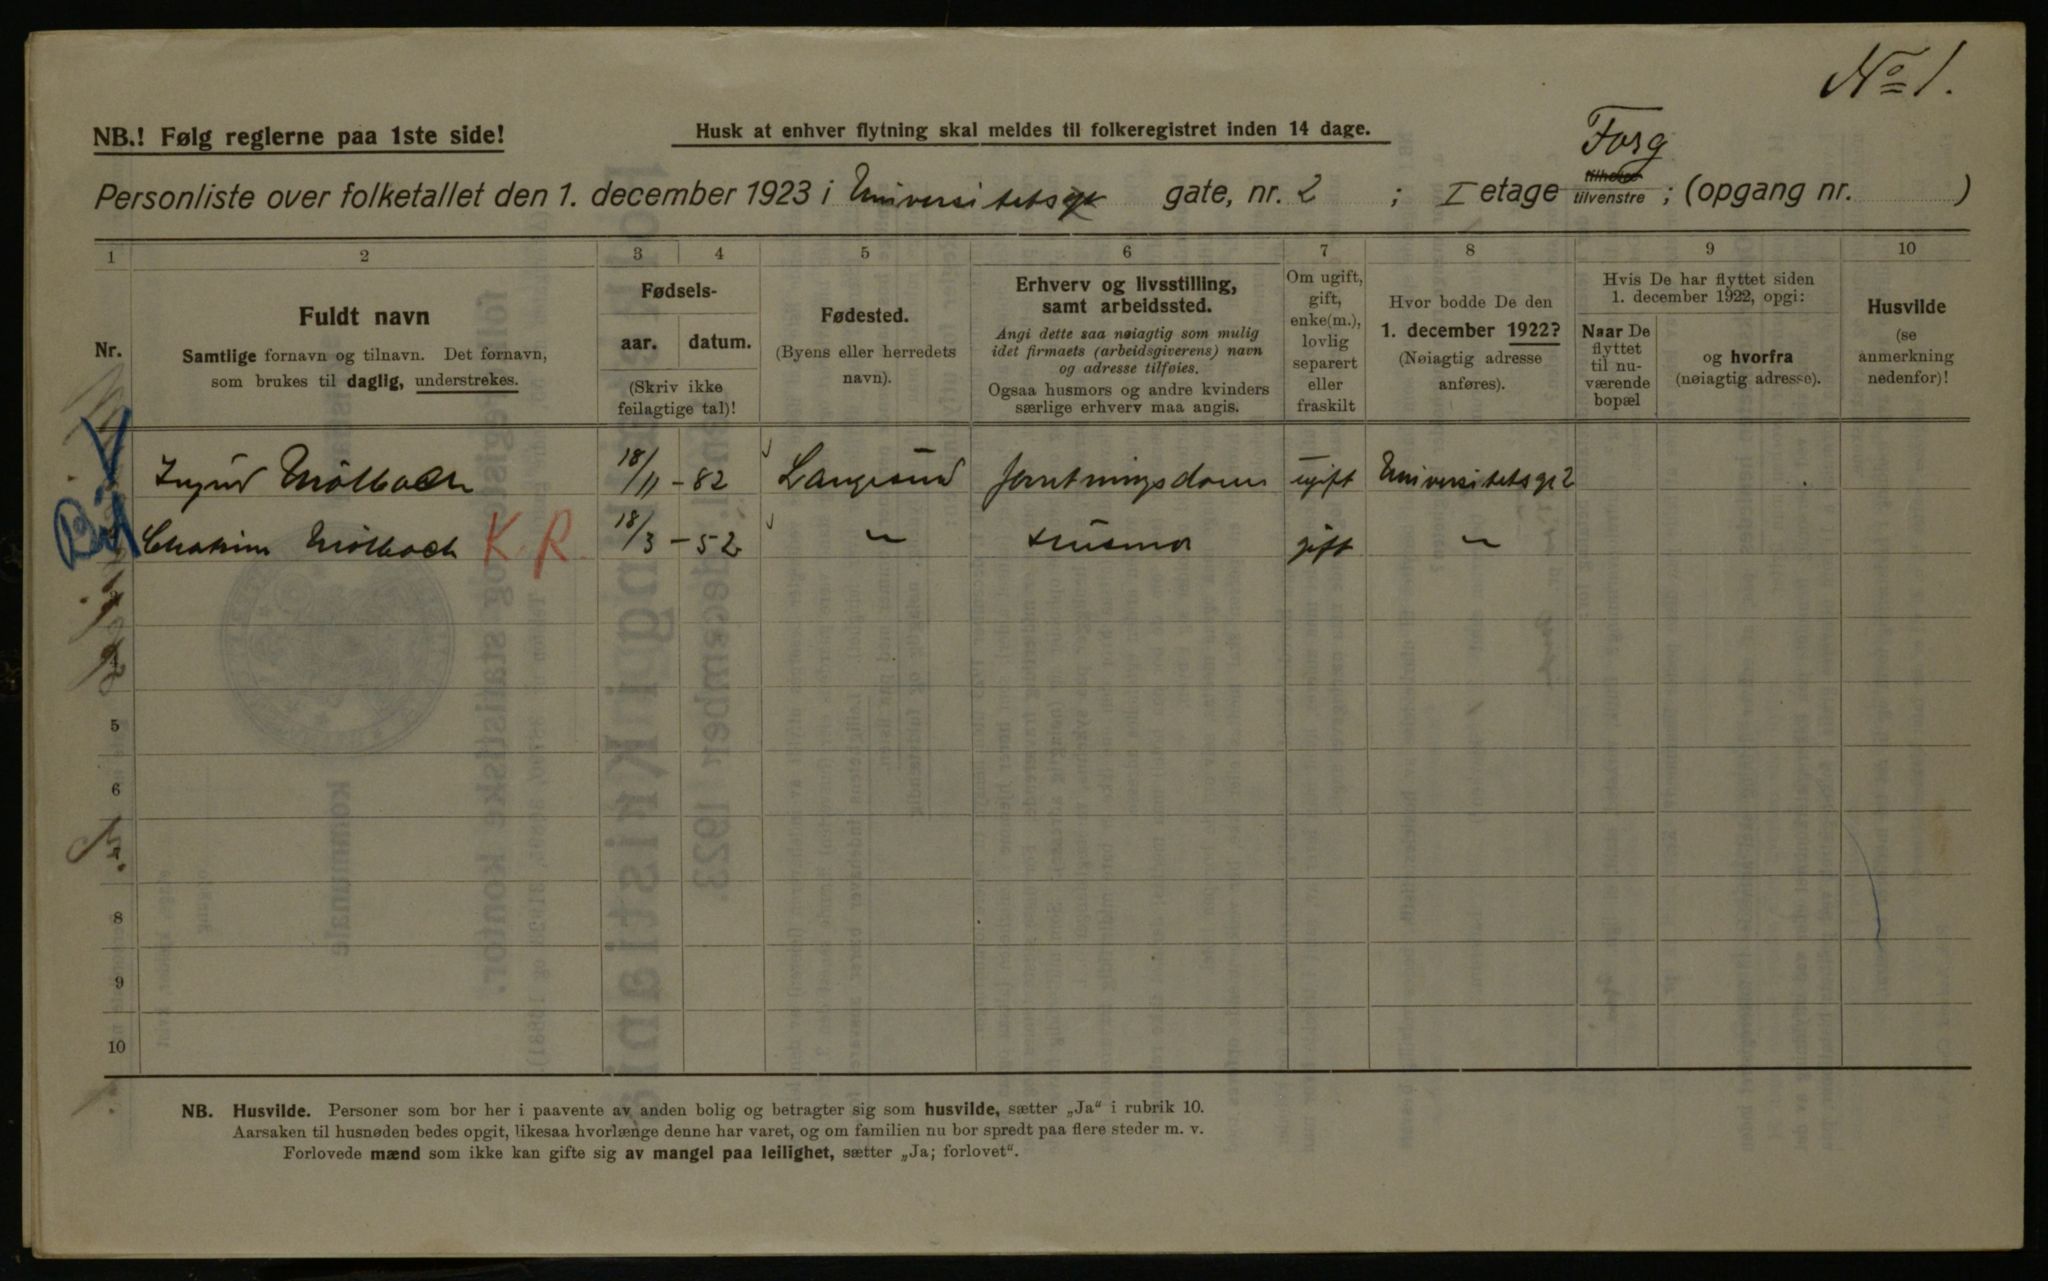 No 1.
NB.! Følg reglerne paa 1ste side!
Husk at enhver flytning skal meldes til folkeregistret inden 14 dage.
Forg
Personliste over folketallet den 1. december 1923 i Universitetsgt gate, nr. 2 ; I etage tilhøire tilvenstre ; (opgang nr. )
1 2 3 4 5 6 7 8 9 10
Nr.
Fuldt navn
Samtlige fornavn og tilnavn. Det fornavn,
som brukes til daglig, understrekes.
Fødsels-
aar. datum.
(Skriv ikke
feilagtige tal)!
Fødested.
(Byens eller herredets
navn).
Erhverv og livsstilling,
samt arbeidssted.
Angi dette saa nøiagtig som mulig
idet firmaets (arbeidsgiverens) navn
og adresse tilføies.
Ogsaa husmors og andre kvinders
særlige erhverv maa angis.
Om ugift,
gift,
enke(m.),
lovlig
separert
eller
fraskilt
Hvor bodde De den
1. december 1922?
(Nøiagtig adresse
anføres).
Hvis De har flyttet siden
1. december 1922, opgi:
Naar De
flyttet
til nu-
værende
bopæl
og hvorfra
(nøiagtig adresse).
Husvilde
(se
anmerkning
nedenfor)!
Mølbach 18/11 - 82 Langesund forretningsdame ugift Universitetsgt 2
Mølbach K. R. 18/3 - 52 " Husmor gift "
5
6
8
9
10
NB. Husvilde. Personer som bor her i paavente av anden bolig og betragter sig som husvilde, sætter „Ja“ i rubrik 10.
Aarsaken til husnøden bedes opgit, likesaa hvorlænge denne har varet, og om familien nu bor spredt paa flere steder m. v.
Forlovede mænd som ikke kan gifte sig av mangel paa leilighet, sætter „Ja; forlovet“.